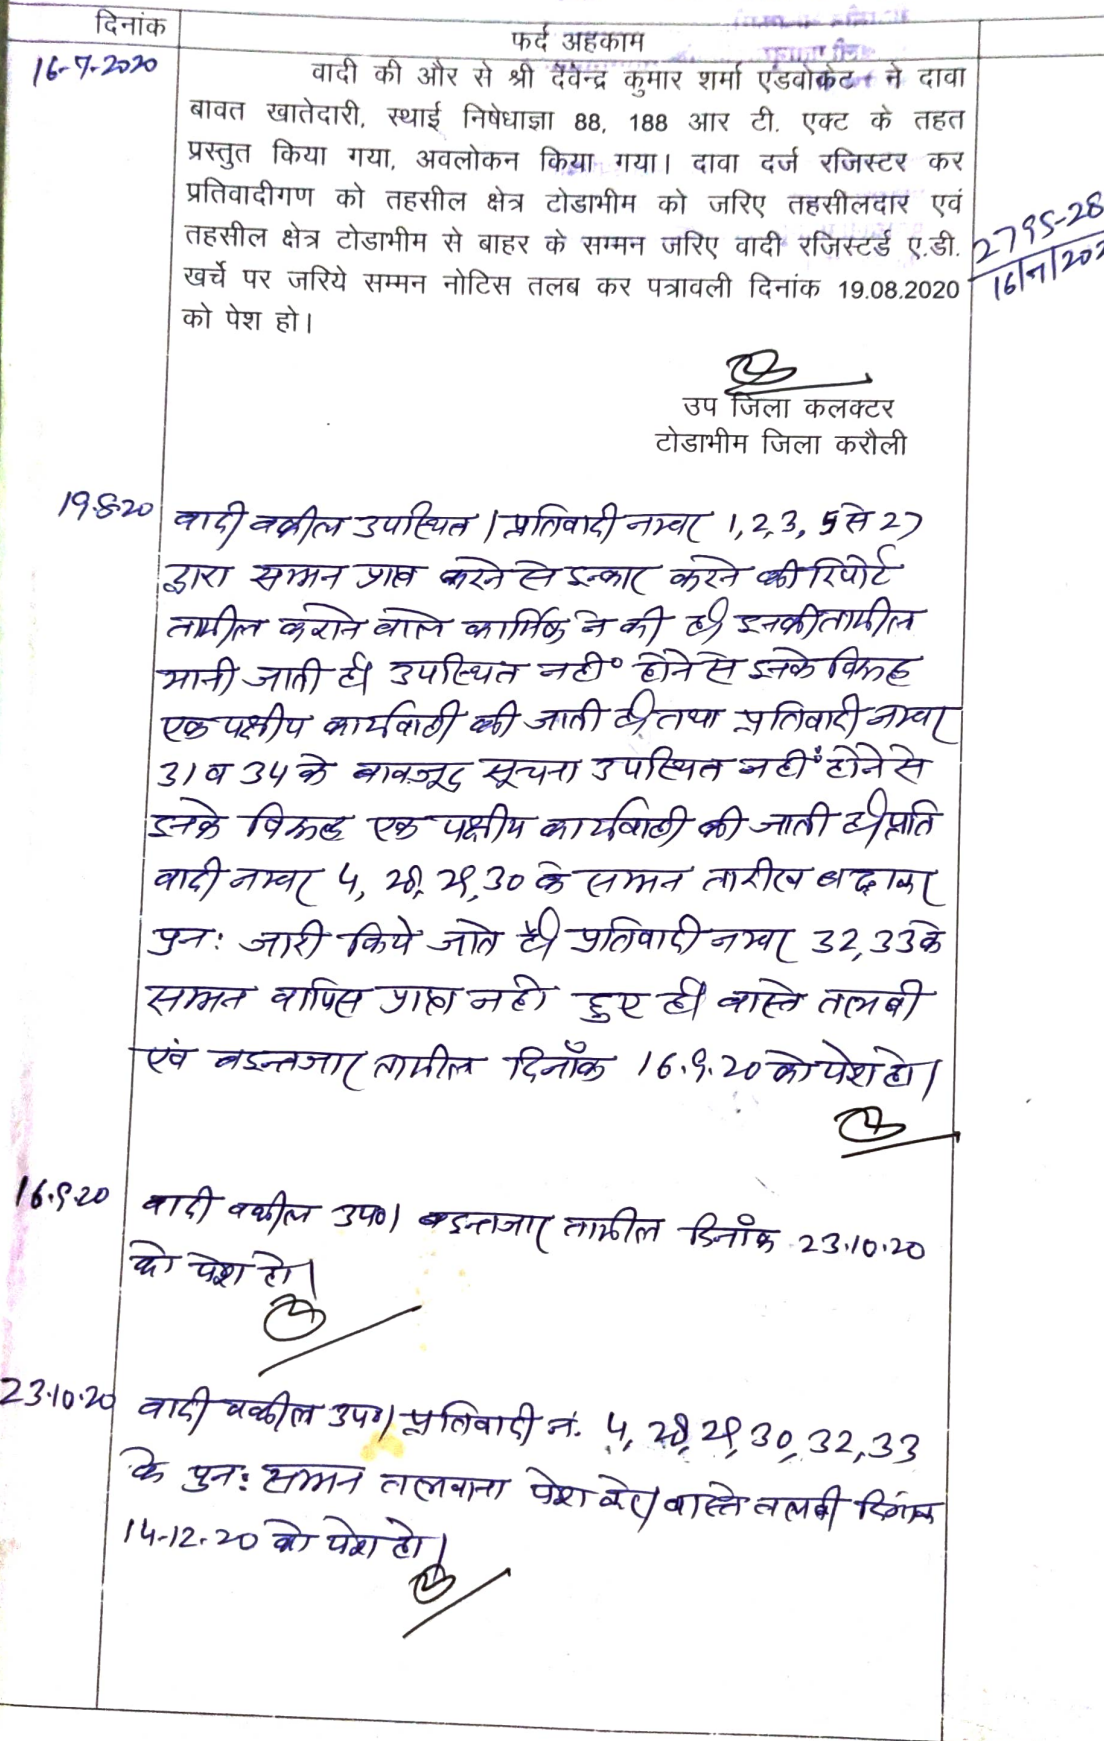 दिनांक
फर्द अहकाम
16-7-2020
वादी की और से श्री देवेन्द्र कुमार शर्मा एडवोकेट ने दावा
बावत खातेदारी, स्थाई निषेधाज्ञा 88, 188 आर टी. एक्ट के तहत
प्रस्तुत किया गया, अवलोकन किया गया। दावा दर्ज रजिस्टर कर
प्रतिवादीगण को तहसील क्षेत्र टोडाभीम को जरिए तहसीलदार एवं
तहसील क्षेत्र टोडाभीम से बाहर के सम्मन जरिए वादी रजिस्टर्ड ए.डी.
खर्चे पर जरिये सम्मन नोटिस तलब कर पत्रावली दिनांक 19.08.2020
को पेश हो।
2795-28
16/7/202
उप जिला कलक्टर
टोडाभीम जिला करौली
19.8.20 वादी वकील उपस्थित। प्रतिवादी नम्बर 1,2,3, 5 से 27
द्वारा सम्मन प्राप्त करने से इन्कार करने की रिपोर्ट
तामील कराने वाले कार्मिक ने की है। इनकी तामील
मानी जाती है। उपस्थित नहीं होने से इनके विरूद्ध
एक पक्षीय कार्यवाही की जाती है। तथा प्रतिवादी नम्बर
31 व 34 के बावजूद सूचना उपस्थित नहीं होने से
इनके विरूद्ध एक पक्षीय कार्यवाही की जाती है। प्रति
वादी नम्बर 4, 28, 29, 30 के सम्मन तारीख बढाकर
पुनः जारी किये जाते है। प्रतिवादी नम्बर 32,33 के
सम्मन वापिस प्राप्त नही हुए है। वास्ते तलबी
एवं बइन्तजार तामील दिनाँक 16.9.20 को पेश हो।
16.9.20 वादी वकील उप०। बइन्तजार तामील दिनाँक 23.10.20
को पेश हो।
23.10.20 वादी वकील उप०। प्रतिवादी नं. 4, 28, 29, 30, 32, 33
के पुनः सम्मन तलवाना पेश करे। वास्ते तलबी दिनांक
14-12-20 को पेश हो।